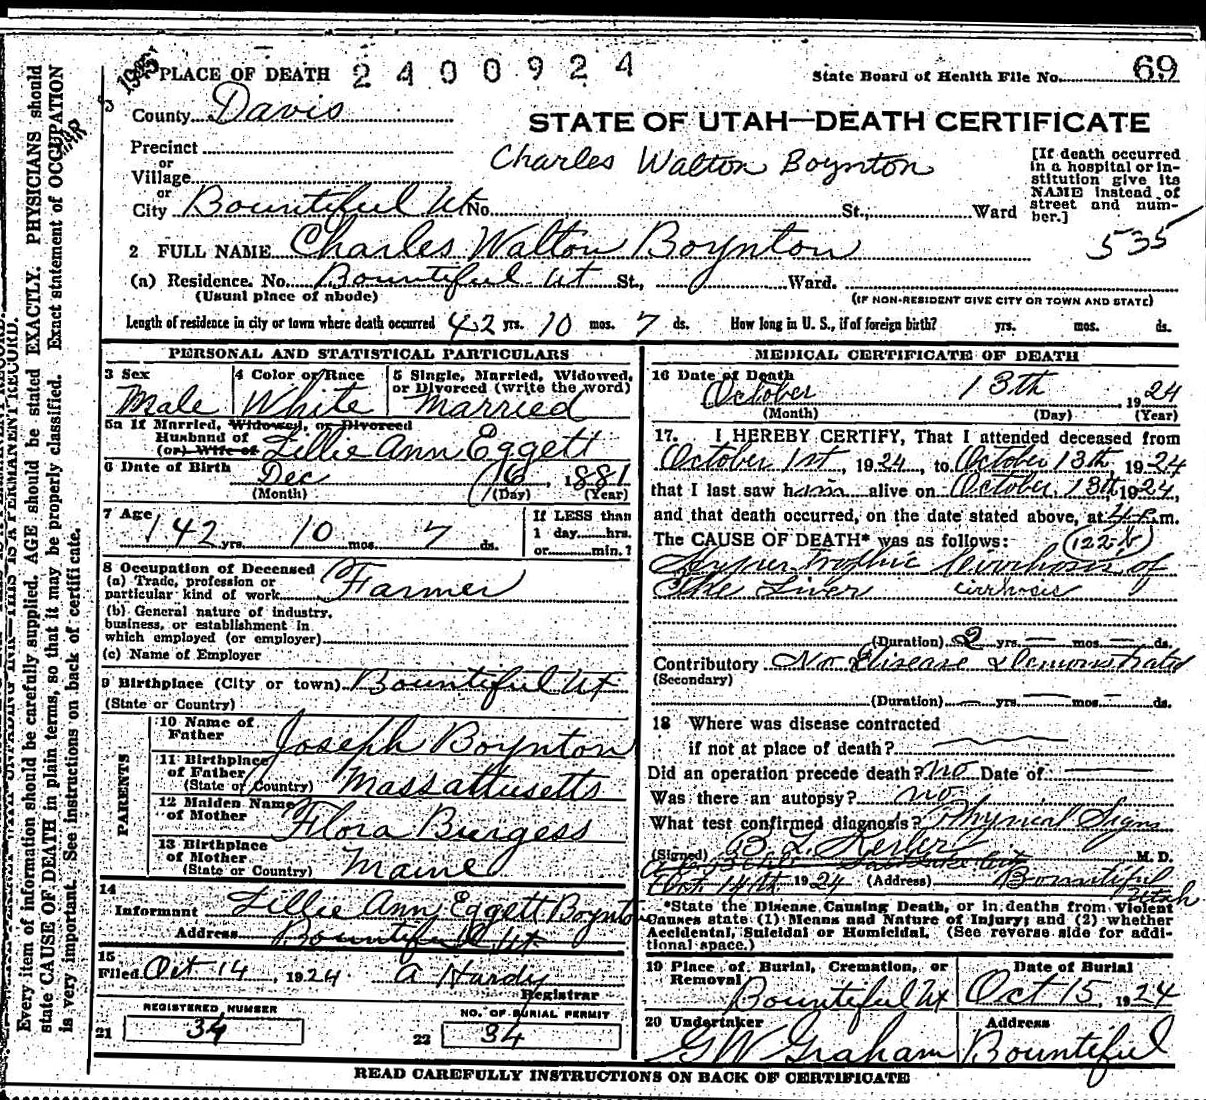 1935
PLACE OF DEATH 2400924 State Board of Health File No. 69
County Davis
STATE OF UTAH—DEATH CERTIFICATE
Precinct
Charles Walton Boynton
or
Village
or
City Bountiful Ut No. St., Ward
[If death occurred
in a hospital or in-
stitution give its
NAME instead of
street and num-
ber.]
535
2 FULL NAME Charles Walton Boynton
(a) Residence. No. Bountiful Ut St., Ward.
(Usual place of abode) (IF NON-RESIDENT GIVE CITY OR TOWN AND STATE)
Length of residence in city or town where death occurred 42 yrs. 10 mos. 7 ds. How long in U. S., if of foreign birth? yrs. mos. ds.
PERSONAL AND STATISTICAL PARTICULARS
3 Sex Male
4 Color or Race White
5 Single, Married, Widowed,
or Divorced (write the word)
Married
5a If Married, Widowed, or Divorced
Husband of
(or) Wife of Lillie Ann Eggett
6 Date of Birth Dec 6, 1881
(Month) (Day) (Year)
7 Age 42 yrs. 10 mos. 7 ds.
If LESS than
1 day hrs.
or min.?
8 Occupation of Deceased
(a) Trade, profession or
particular kind of work Farmer
(b) General nature of industry,
business, or establishment in
which employed (or employer)
(c) Name of Employer
9 Birthplace (City or town) Bountiful Ut
(State or Country)
PARENTS
10 Name of
Father Joseph Boynton
11 Birthplace
of Father
(State or Country) Massattusetts
12 Maiden Name
of Mother Flora Burgess
13 Birthplace
of Mother
(State or Country) Maine
14
Informant Lillie Ann Eggett Boynton
Address Bountiful Ut
15
Filed Oct 14, 1924 A Hardy
Registrar
REGISTERED NUMBER
21 34
NO. OF BURIAL PERMIT
22 34
MEDICAL CERTIFICATE OF DEATH
16 Date of Death
October 13th, 1924
(Month) (Day) (Year)
17. I HEREBY CERTIFY, That I attended deceased from
October 1st, 1924, to October 13th, 1924
that I last saw him alive on October 13th 1924,
and that death occurred, on the date stated above, at 4 P.m.
The CAUSE OF DEATH* was as follows: (122-b)
Hyper Trophic Cirrhosis of
The Liver cirrhosis
(Duration) 2 yrs. — mos. — ds.
Contributory No Disease Demonstrated
(Secondary)
(Duration) — yrs. — mos. — ds.
18 Where was disease contracted
if not at place of death?
Did an operation precede death? no Date of
Was there an autopsy? no
What test confirmed diagnosis? Physical Signs
(Signed) M. D.
Oct 14th 1924 (Address) Bountiful
Utah
*State the Disease Causing Death, or in deaths from Violent
Causes state (1) Means and Nature of Injury; and (2) whether
Accidental, Suicidal or Homicidal. (See reverse side for addi-
tional space.)
19 Place of Burial, Cremation, or
Removal
Bountiful Ut
Date of Burial
Oct 15, 1924
20 Undertaker
G W Graham
Address
Bountiful
READ CAREFULLY INSTRUCTIONS ON BACK OF CERTIFICATE
Every item of information should be carefully supplied. AGE should be stated EXACTLY. PHYSICIANS should
state CAUSE OF DEATH in plain terms, so that it may be properly classified. Exact statement of OCCUPATION
is very important. See instructions on back of certificate.